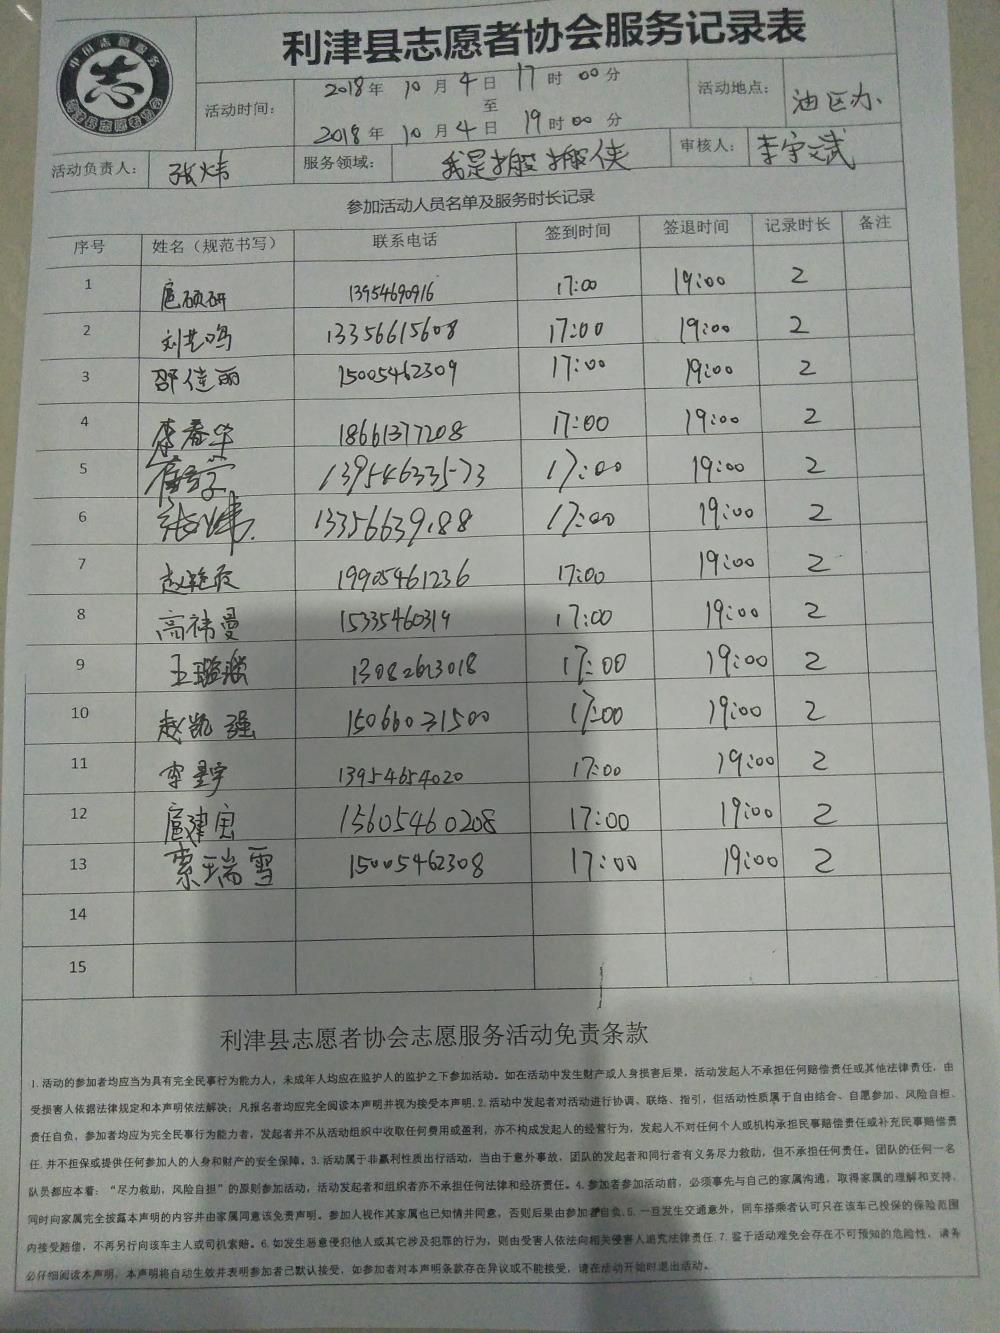 中国志愿服务
志
利津县志愿者协会服务记录表
活动时间： 2018年 10月4日 17时00分
至
2018年 10月4日 19时00分
活动地点： 油区办
活动负责人： 张炜 服务领域： 我是搬搬侠 审核人： 李宇斌
参加活动人员名单及服务时长记录
序号 姓名（规范书写） 联系电话 签到时间 签退时间 记录时长 备注
1 扈硕研 13954690916 17:00 19:00 2
2 刘艺鸣 13356615608 17:00 19:00 2
3 邵佳丽 15005462309 17:00 19:00 2
4 李春华 18661377208 17:00 19:00 2
5 13954633573 17:00 19:00 2
6 张炜 13356639188 17:00 19:00 2
7 19905461236 17:00 19:00 2
8 高祎曼 15335460319 17:00 19:00 2
9 17:00 19:00 2
10 赵凯强 15066031500 17:00 19:00 2
11 李星宇 13954654020 17:00 19:00 2
12 扈建国 13605460208 17:00 19:00 2
13 索瑞雪 15005462308 17:00 19:00 2
14
15
利津县志愿者协会志愿服务活动免责条款
1.活动的参加者均应当为具有完全民事行为能力人，未成年人均应在监护人的监护之下参加活动。如在活动中发生财产或人身损害后果，活动发起人不承担任何赔偿责任或其他法律责任，由
受损害人依据法律规定和本声明依法解决；凡报名者均应完全阅读本声明并视为接受本声明.2.活动中发起者对活动进行协调、联络、指引，但活动性质属于自由结合、自愿参加、风险自担、
责任自负，参加者均应为完全民事行为能力者，发起者并不从活动组织中收取任何费用或盈利，亦不构成发起人的经营行为，发起人不对任何个人或机构承担民事赔偿责任或补充民事赔偿责
任.并不担保或提供任何参加人的人身和财产的安全保障。3.活动属于非赢利性质出行活动，当由于意外事故，团队的发起者和同行者有义务尽力救助，但不承担任何责任。团队的任何一名
队员都应本着：“尽力救助，风险自担”的原则参加活动，活动发起者和组织者亦不承担任何法律和经济责任。4.参加者参加活动前，必须事先与自己的家属沟通，取得家属的理解和支持，
同时向家属完全披露本声明的内容并由家属同意该免责声明。参加人视作其家属也已知情并同意，否则后果由参加者自负.5.一旦发生交通意外，同车搭乘者认可只在该车已投保的保险范围
内接受赔偿，不再另行向该车主人或司机索赔。6.如发生恶意侵犯他人或其它涉及犯罪的行为，则由受害人依法向相关侵害人追究法律责任.7.鉴于活动难免会存在不可预知的危险性，请务
必仔细阅读本声明，本声明将自动生效并表明参加者已默认接受，如参加者对本声明条款存在异议或不能接受，请在活动开始时退出活动。